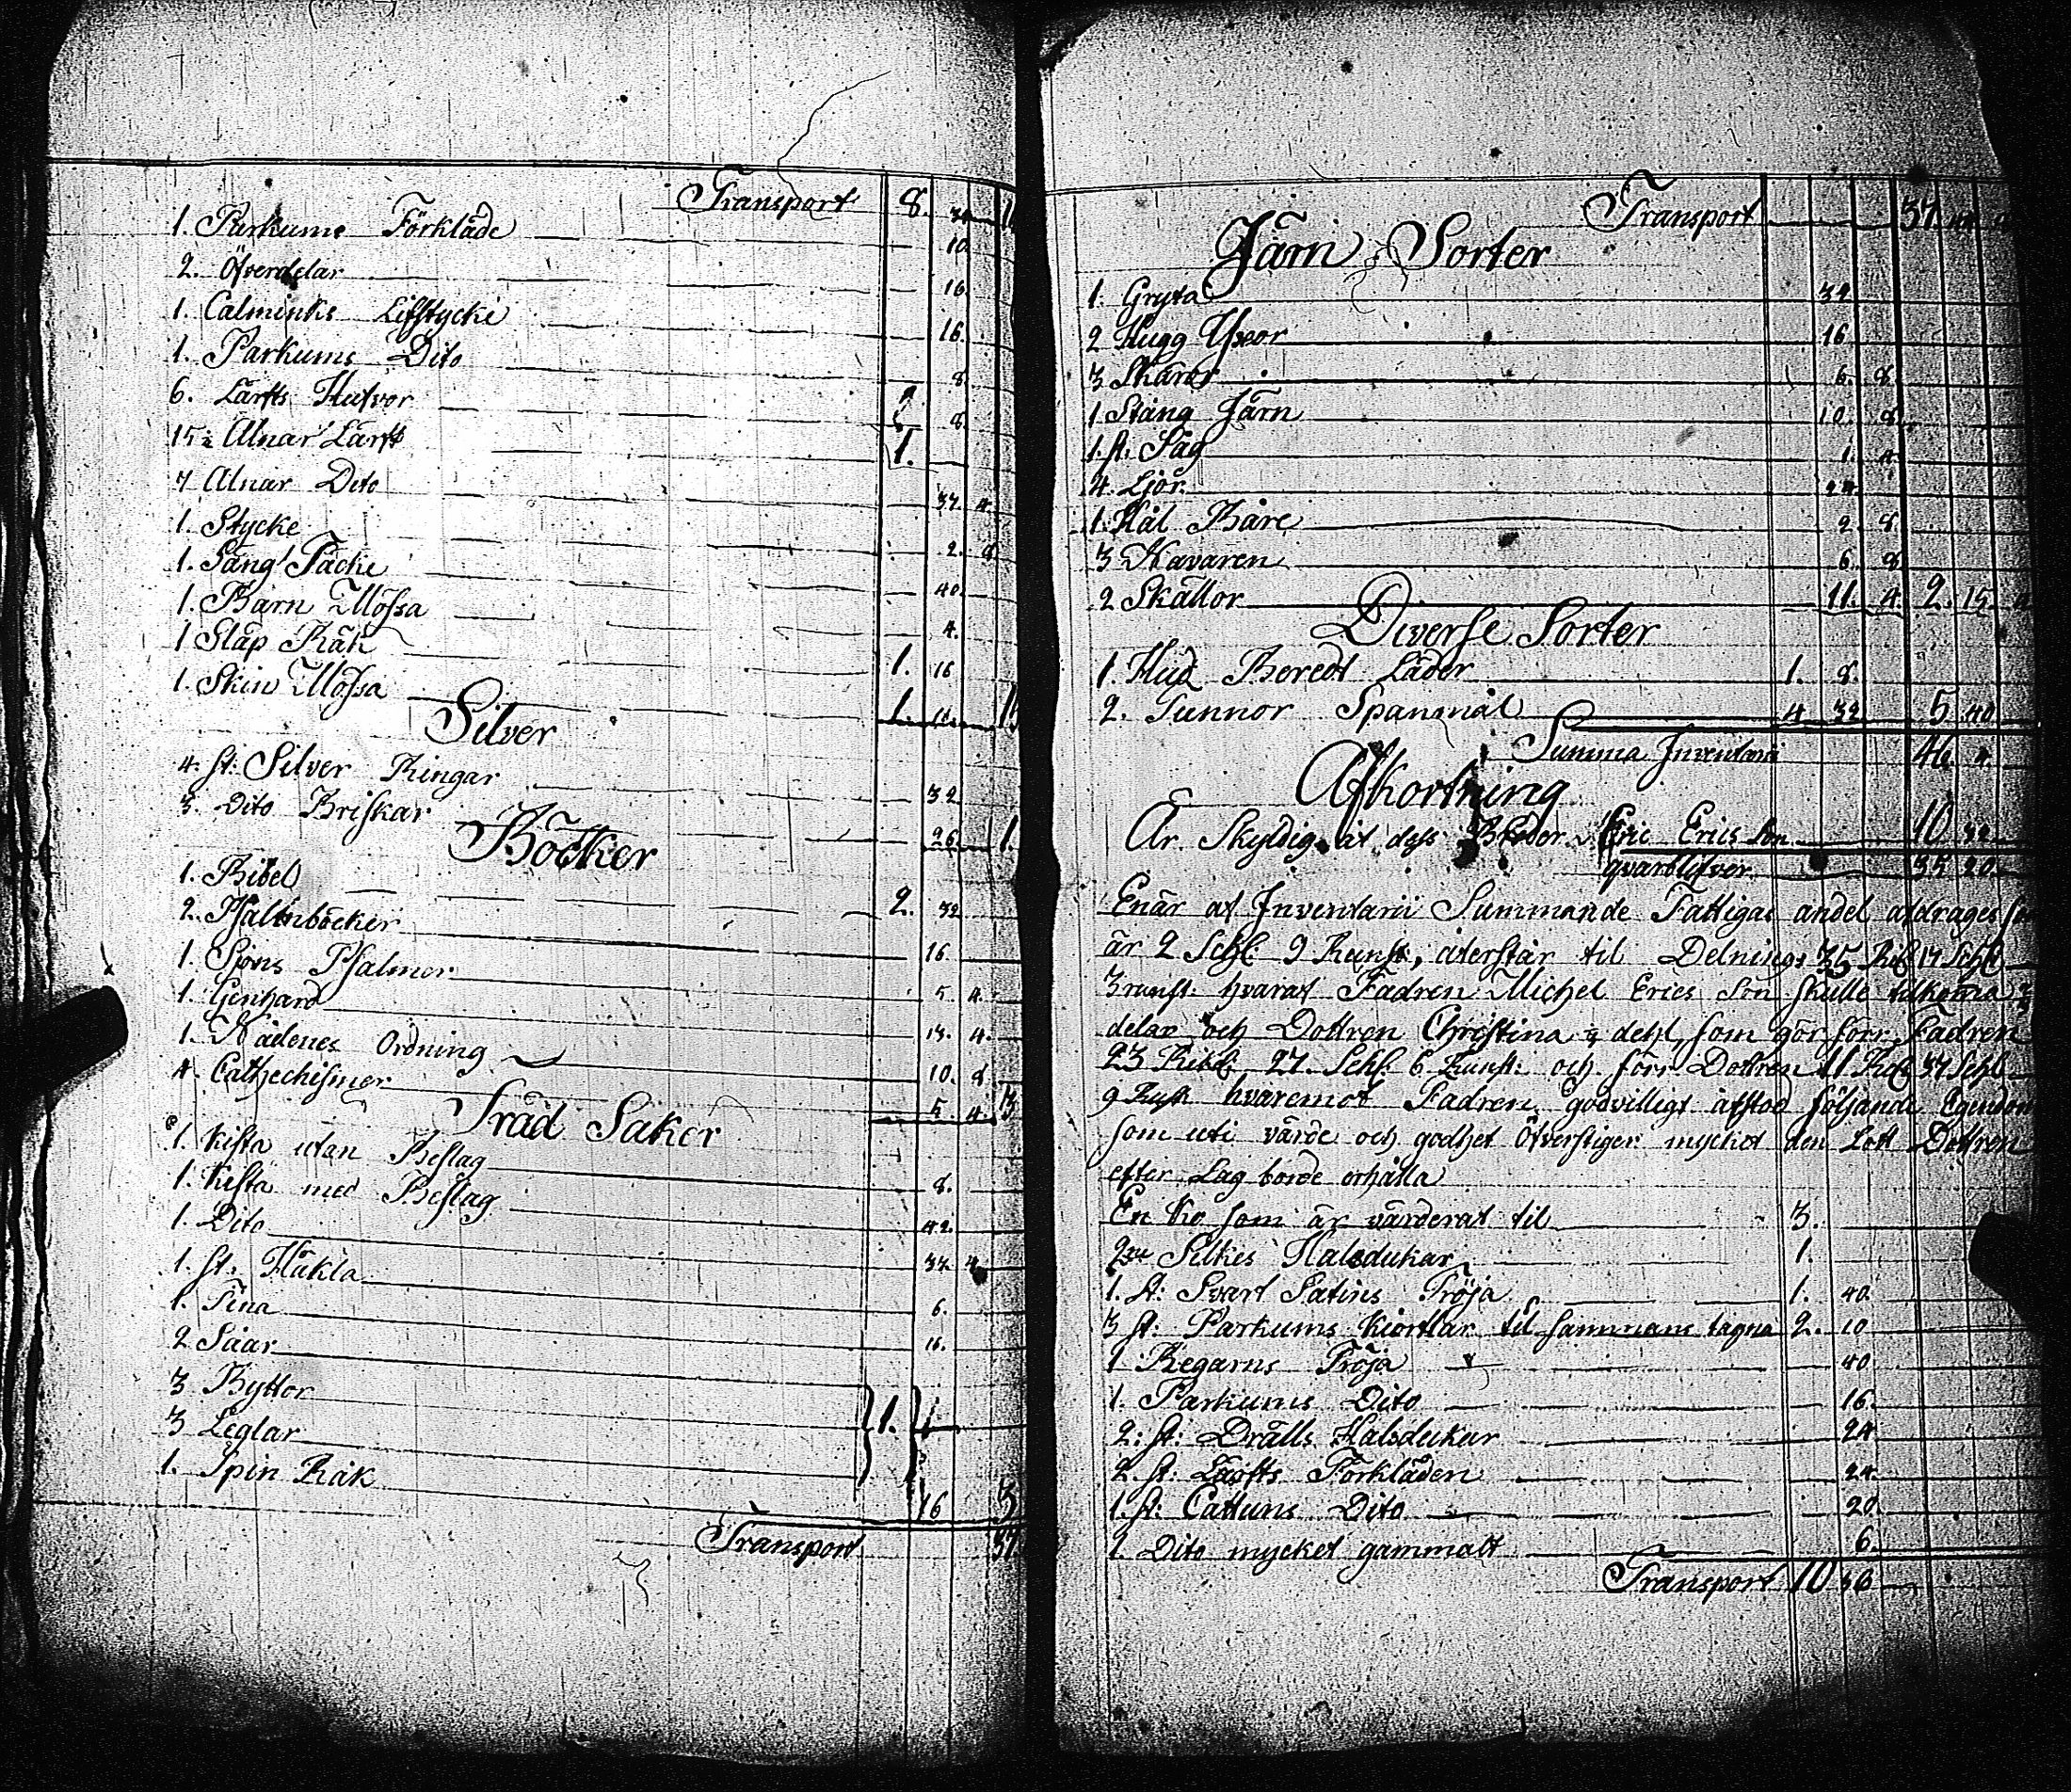 Transport 8. 34
1. Parkums Förkläde 10
2. Öfverdelar 16
1. Calminks Lifstycke 16.
1. Parkums Dito 8
6. Lärfts Hufvor 8.
15½ Alnar Lärft 1.
7 Alnar Dito 37 4
1. Stycke 2. 8
1. Säng Täcke 40
1. Barn Mössa 4.
1 Släp Räk 1. 16
1. Skin Mössa 1.
Silver
4. st: Silver Ringar 32
3. Dito Briskar 26 1.
Böcker
1. Bibel 2. 32
2. Psalmböcker 16
1. Sions Psalmer 5 4.
1. Genhard 13. 4.
1. Nådenes Ordning 10. 8
4. Cathechismer 5. 4. 3
Träd Saker
1. Kista utan Beslag 8.
1. Kista med Beslag 42.
1. Dito 37 4
1. st. Häkla 6.
1. Tina 16.
2 Såar
3 Byttor
3 Leglar 1.
1. Spin Råk 16 3
Transport 37
Transport 37.
Järn Sorter
1. Gryta 32
2 Hugg Yxor 16
3 Skäror 6. 8
1 Stång Järn 10. 8
1. st. Såg 1. 4.
4. Ljor 24
1. Hål Bare 2. 8
3 Navaren 6. 8
2 Skällor 11. 4. 2. 15.
Diverse Sorter
1. Hud Beredt Läder 1. 8.
2. Tunnor Spanmål 4 32 5 40
Summa Inventarii 46. 4.
Afkortning
Är Skyldig åt dess Broder Eric Ericsson 10 32
qvarblifver 35 20
Enär af Inventarii Summan de Fattigas andel afdrages
är 2 Schl: 9 Runst:, återstår til Delnings 35 Rd 17 Schl
3 runst: hvaraf Fadren Michel Erics Son skulle tilkoma
delar och Dottren Christina ⅓ dehl, som gör förr Fadren
23 Rikd: 27. Schl. 6 Runst: och förr Dottren 11 Rd 37 Schl
9 Rust hvaremot Fadren godvilligt afstod följande Egendom
som uti värde och godhet öfverstiger mycket den Lott Dottren
efter Lag borde erhålla
En Ko som är värderat til 3.
2ne Silkes Halsdukar 1.
1. st: Svart Satins Tröja 1. 40
3 st: Parkums Kiortlar til sammans tagna 2. 10
1 Regarns Tröja 40
1. Parkums Dito 16.
2: st: Drälls Halsdukar 24
2. st: Lärfts Förkläden 24
1. st: Cattuns Dito 20
1. Dito mycket gammalt 6
Transport 10 36